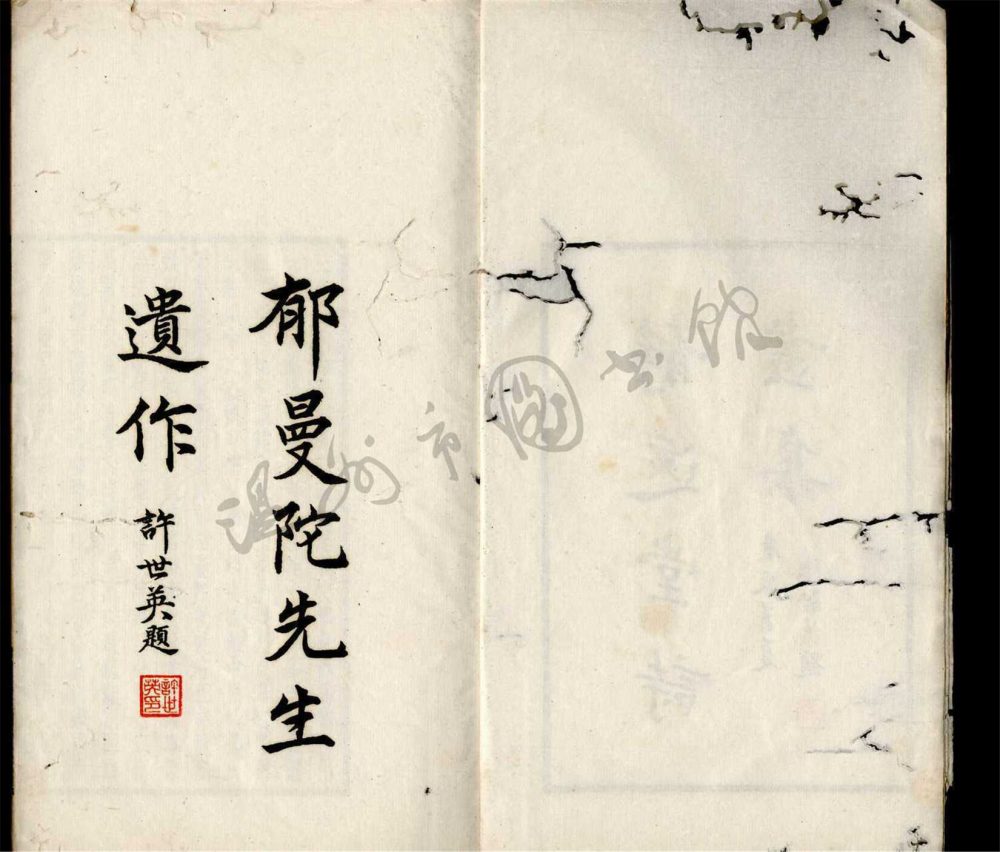 郁曼陀先生
遺作
許世英題
許世英印
温州市圖书馆